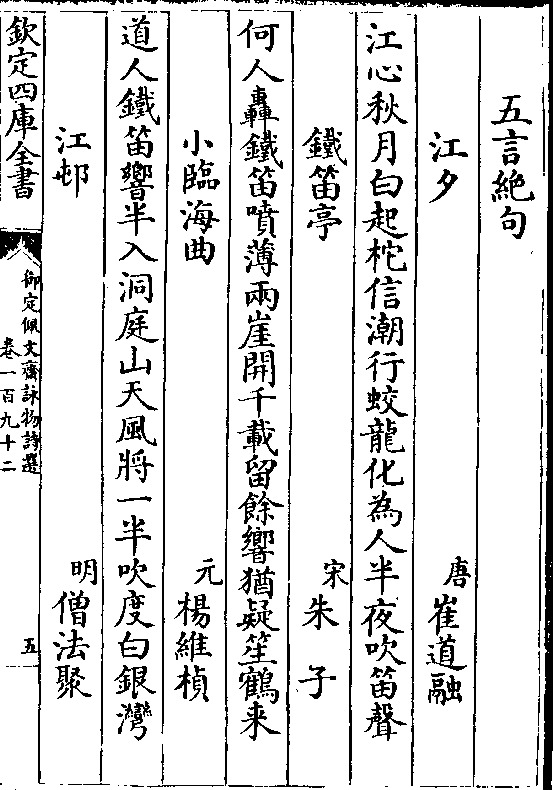 五言絶句
江夕　唐崔道融
江心秋月白起柁信潮行蛟龍化為人半夜吹笛聲
鐵笛亭　宋朱子
何人轟鐵笛噴薄兩崖開千載留餘響猶疑笙鶴来
小臨海曲　元楊維楨
道人鐵笛響半入洞庭山天風將一半吹度白銀灣
江邨　明僧法聚
欽定四庫全書
御定佩文齋詠物詩選
卷一百九十二
五